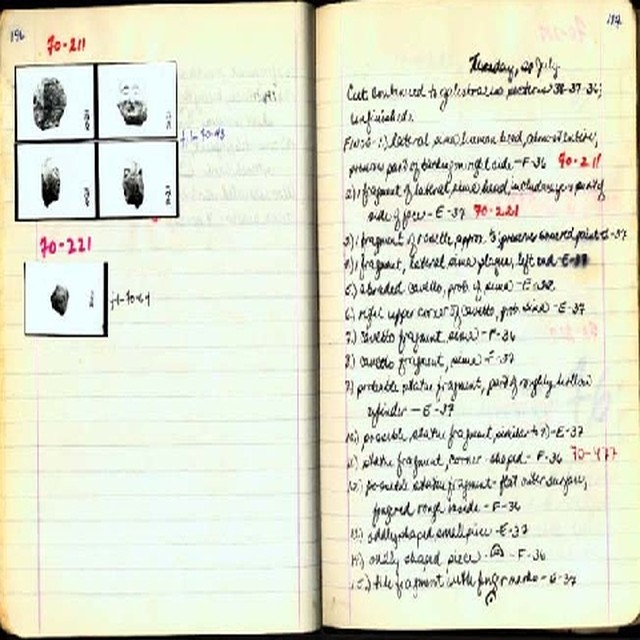 196
70-211
70-221
187
Tuesday, 28 July
Cut continued to
unfinished.
lateral sima human head, almost entire,
preserves part of backing on right side - F-36 70-211
2) fragment of lateral sima head, includes eye & part of
side of face - E-37 70-221
3) fragment of cavetto, approx.
4) fragment, lateral sima plaque, left end E-37
5) abraded cavetto, prob. of sima - E-
6) right upper corner of cavetto, prob. sima - E-37
7) cavetto fragment, sima - F-36
8) cavetto fragment, sima - E-37
9) probable statue fragment, part of roughly hollow
cylinder - E-37
10) possible statue fragment, similar to 9) - E-37
11) statue fragment, corner-shaped - F-36 70-477
12) possible statue fragment - flat outer surface,
fingered rough inside - F-36
13) oddly shaped small piece - E-37
14) oddly shaped piece - F-36
15) tile fragment with finger marks - E-37